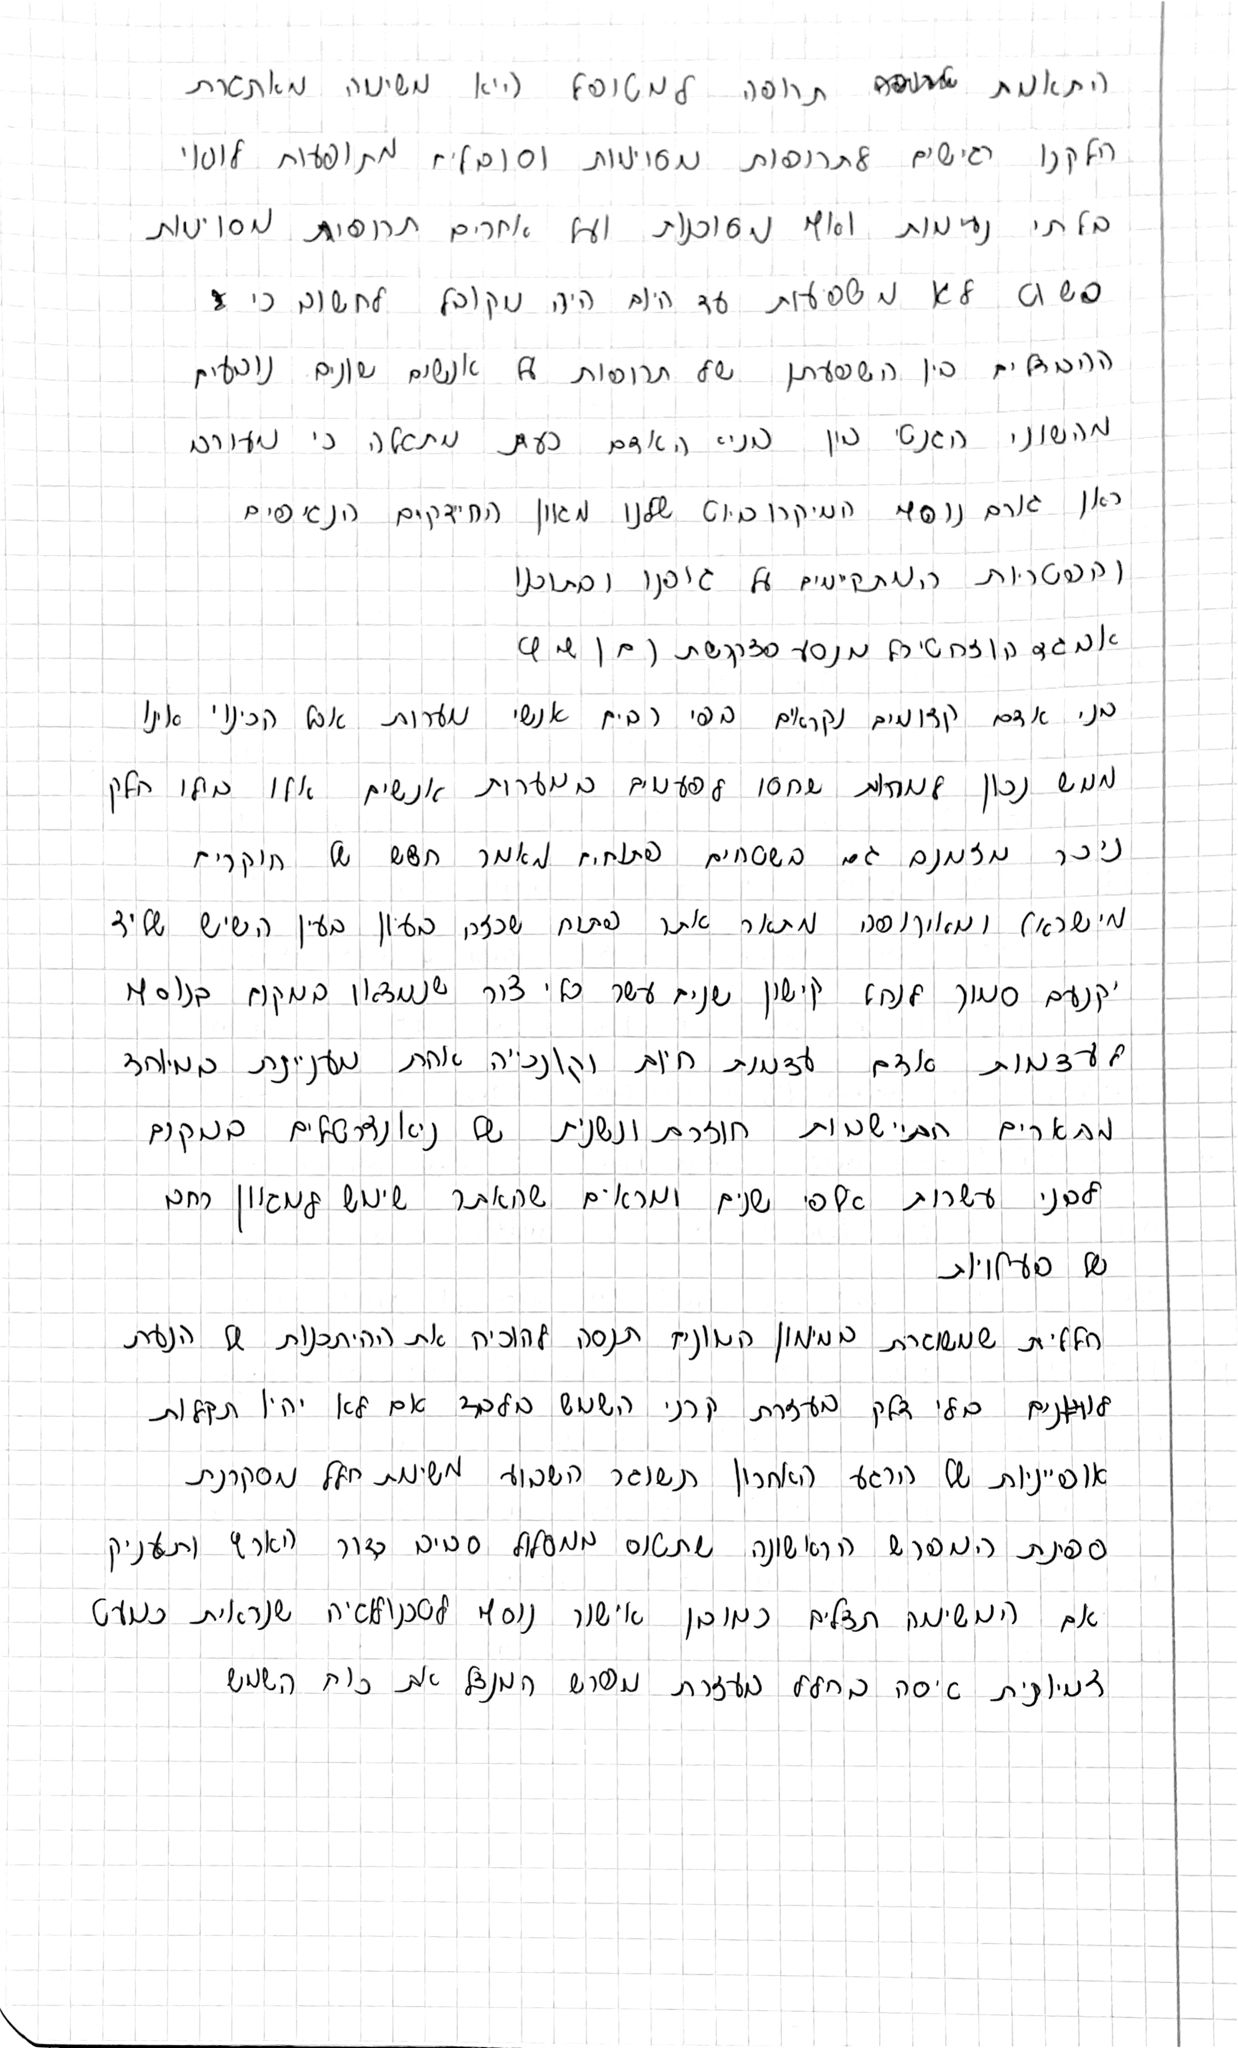 התאמת תרופה למטופל היא משימה מאתגרת
חלקנו רגישים לתרופות מסוימות וסובלים מתופעות לוואי
בלתי נעימות ואף מסוכנות ועל אחרים תרופות מסוימות
פשוט לא משפיעות עד היום היה מקובל לחשוב כי
ההבדלים בין השפעתן של תרופות על אנשים שונים נובעים
מהשוני הגנטי בין בני האדם כעת מתגלה כי מעורב
כאן גורם נוסף המיקרוביוט שלנו מגוון החיידקים הנגיפים
והפטריות המתקיימים על גופנו ובתוכנו
בני אדם קדומים נקראים בפי רבים אנשי מערות אבל הכינוי אינו
ממש נכון למרות שחסו לפעמים במערות אנשים אלו בילו חלק
ניכר מזמנם גם בשטחים פתוחים מאמר חדש של חוקרים
מישראל ומאירופה מתאר אתר פתוח שכזה בעין בעין השיש שליד
יקנעם סמוך לנחל קישון שנים עשר כלי צור שנמצאו במקום בנוסף
לעצמות אדם עצמות חיות וקונכייה אחת מעניינת במיוחד
מתארים התיישבות חוזרת ונשנית של ניאנדרטלים במקום
לפני עשרות אלפי שנים ומראים שהאתר שימש למגוון רחב
של פעילויות
חללית שמשוגרת במימון המונים תנסה להוכיח את ההיתכנות של הנעת
לוויינים בלי דלק בעזרת קרני השמש בלבד אם לא יהיו תקלות
אופייניות של הרגע האחרון תשוגר השבוע משימת חלל מסקרנת
ספינת המפרש הראשונה שתטוס במסלול סביב כדור הארץ ותעניק
אם המשימה תצליח כמובן אישור נוסף לטכנולוגיה שנראית כמעט
דמיונית טיסה בחלל בעזרת מפרש המנצל את כוח השמש